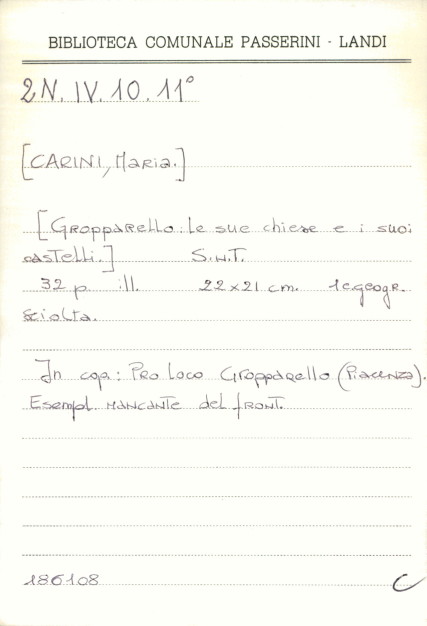 BIBLIOTECA COMUNALE PASSERINI - LANDI
2N. IV. 10. 11°
[CARINI, Maria.]
[Gropparello: le sue chiese e i suoi
castelli.] S.N.T.
32 p. ill. 22x21 cm. 1c.geogr.
sciolta.
In cop.: Pro Loco Gropparello (Piacenza).
Esempl. mancante del front.
186108 C